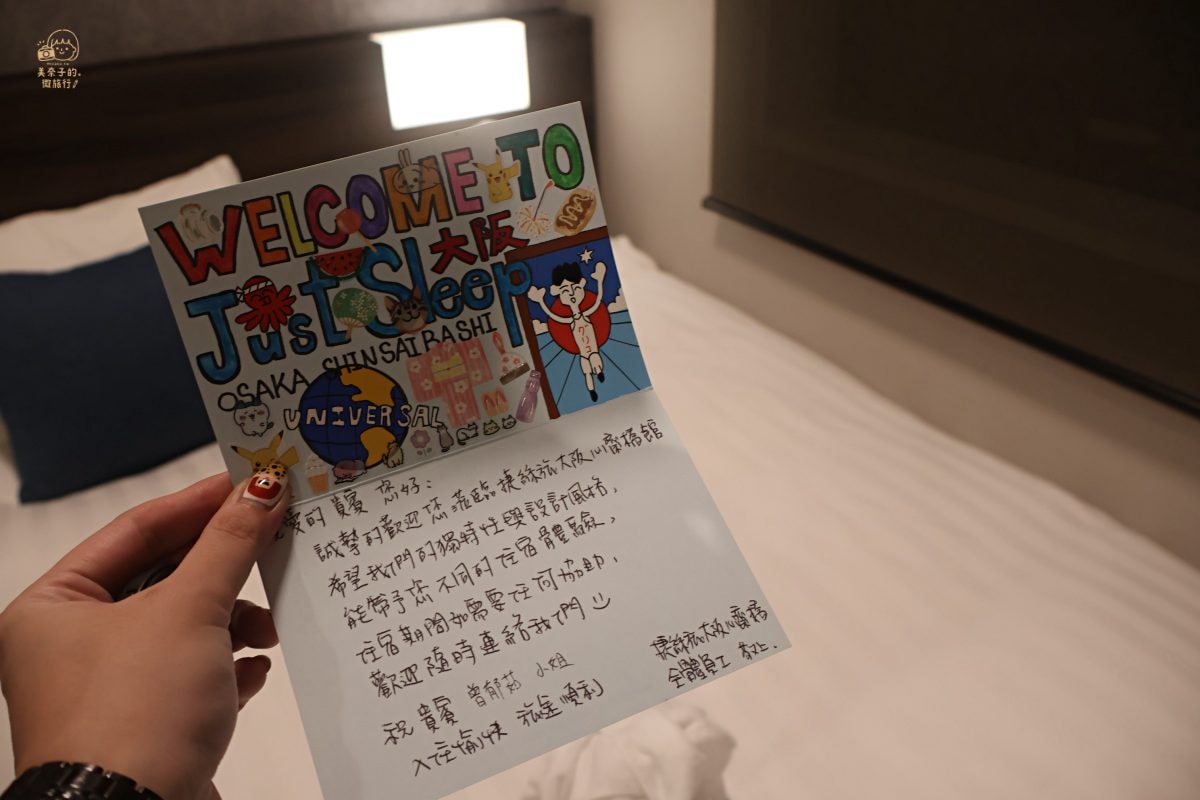 美奈子的。
微旅行
WELCOME TO
大阪
Just Sleep
OSAKA SHINSAIBASHI
グリコ
UNIVERSAL
愛的 貴賓 您好:
誠摯的歡迎您蒞臨捷絲旅大阪心齋橋館
希望我們的獨特性與設計風格,
能帶予您不同的住宿體驗,
住宿期間如需要任何協助,
歡迎隨時連絡我們
祝 貴賓 曾郁茹 小姐
入住愉快 旅途順利
捷絲旅大阪心齋橋
全體員工 敬上.